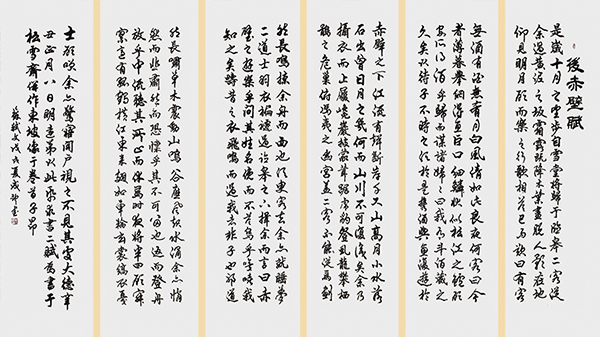 後赤壁賦
是歲十月之望步自雪堂將歸于臨皋二客從
余過黃泥之坂霜露既降木葉盡脫人影在地
仰見明月顧而樂之行歌相答已而歎曰有客
無酒有酒無肴月白風清如此良夜何客曰今
者薄暮舉網得魚巨口細鱗狀似松江之鱸顧
安所得酒乎歸而謀諸婦婦曰我有斗酒藏之
久矣以待子不時之須於是攜酒與魚復遊於
赤壁之下江流有聲斷岸千尺山高月小水落
石出曾日月之幾何而山川不可復識矣余乃
攝衣而上履巉巖披蒙茸踞虎豹登虯龍攀棲
鶻之危巢俯馮夷之幽宮蓋二客不能從焉劃
然長鳴掠余舟而西也須臾客去余亦就睡夢
二道士羽衣翩躚過臨皋之下揖余而言曰赤
壁之遊樂乎問其姓名俛而不答嗚呼噫嘻我
知之矣疇昔之夜飛鳴而過我者非子也耶道
然長嘯草木震動山鳴谷應風起水涌余亦悄
然而悲肅然而恐凜乎其不可留也返而登舟
放乎中流聽其所止而休焉時夜將半四顧寂
寥適有孤鶴橫江東來翅如車輪玄裳縞衣戛
士顧笑余亦驚寤開戶視之不見其處大德辛
丑正月八日明遠弟以此紙求書二賦為書于
松雪齋併作東坡像于卷首子昂
蘇軾文戊戌夏成書